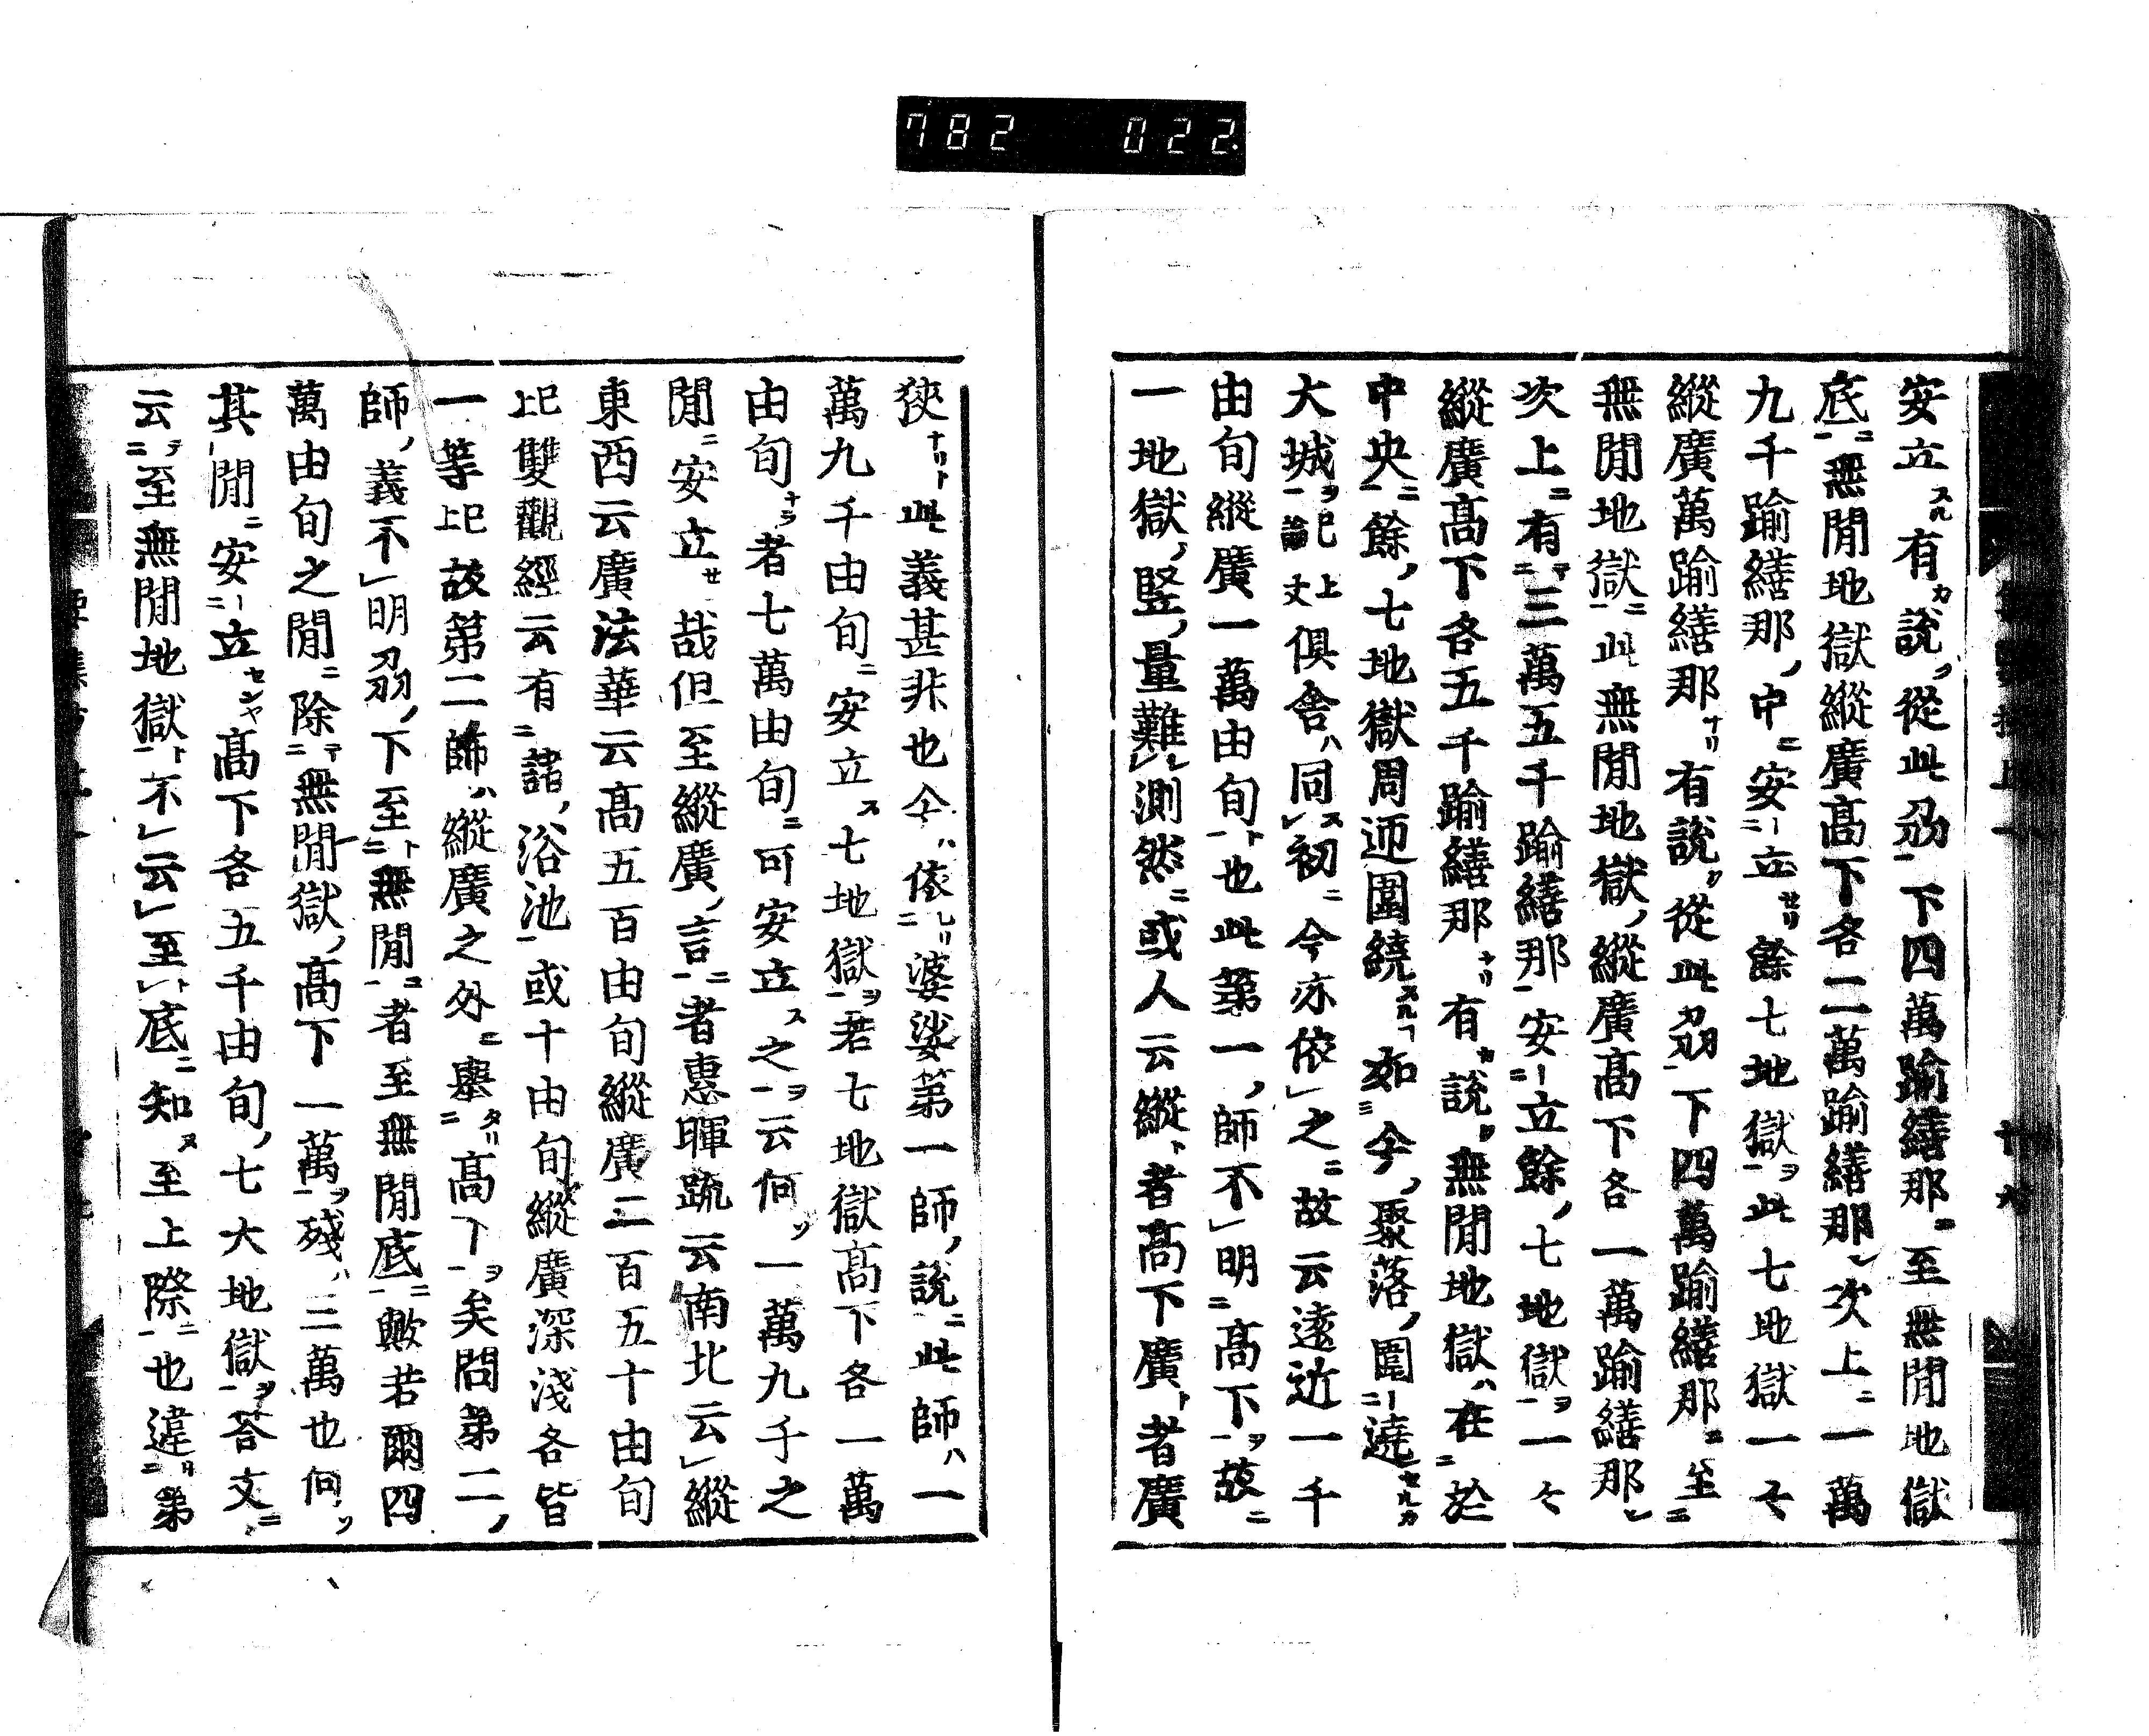 782 022.
安立有説從此刕下四萬踰繕那至無間地獄
底無間地獄縱廣高下各二萬踰繕那次上一萬
九千踰繕那中安立餘七地獄此七地獄一々
縱廣萬踰繕那有説從此刕下四萬踰繕那至
無間地獄此無間地獄縱廣高下各一萬踰繕那
次上有三萬五千踰繕那安立餘七地獄一々
縱廣高下各五千踰繕那有説無間地獄在於
中央餘七地獄周迊圍繞如今聚落圍遶
大城已上論文倶舎同初今亦依之故云遠近一千
由旬縱廣一萬由旬也此第一師不明高下故
一地獄竪量難測然或人云縱者高下廣者廣
狹此義甚非也今依婆娑第一師説此師一
萬九千由旬安立七地獄若七地獄高下各一萬
由旬者七萬由旬可安立之云何一萬九千之
間安立哉但至縱廣言者惠暉疏云南北云縱
東西云廣法華云高五百由旬縱廣二百五十由旬
已上雙觀經云有諸浴池或十由旬縱廣深淺各皆
一等已上故第二師縱廣之外擧高下矣問第二
師義不明刕下至無間者至無間底歟若爾四
萬由旬之間除無間獄高下一萬殘三萬也何
其間安立高下各五千由旬七大地獄荅文
云至無間地獄不云至底知至上際也違第